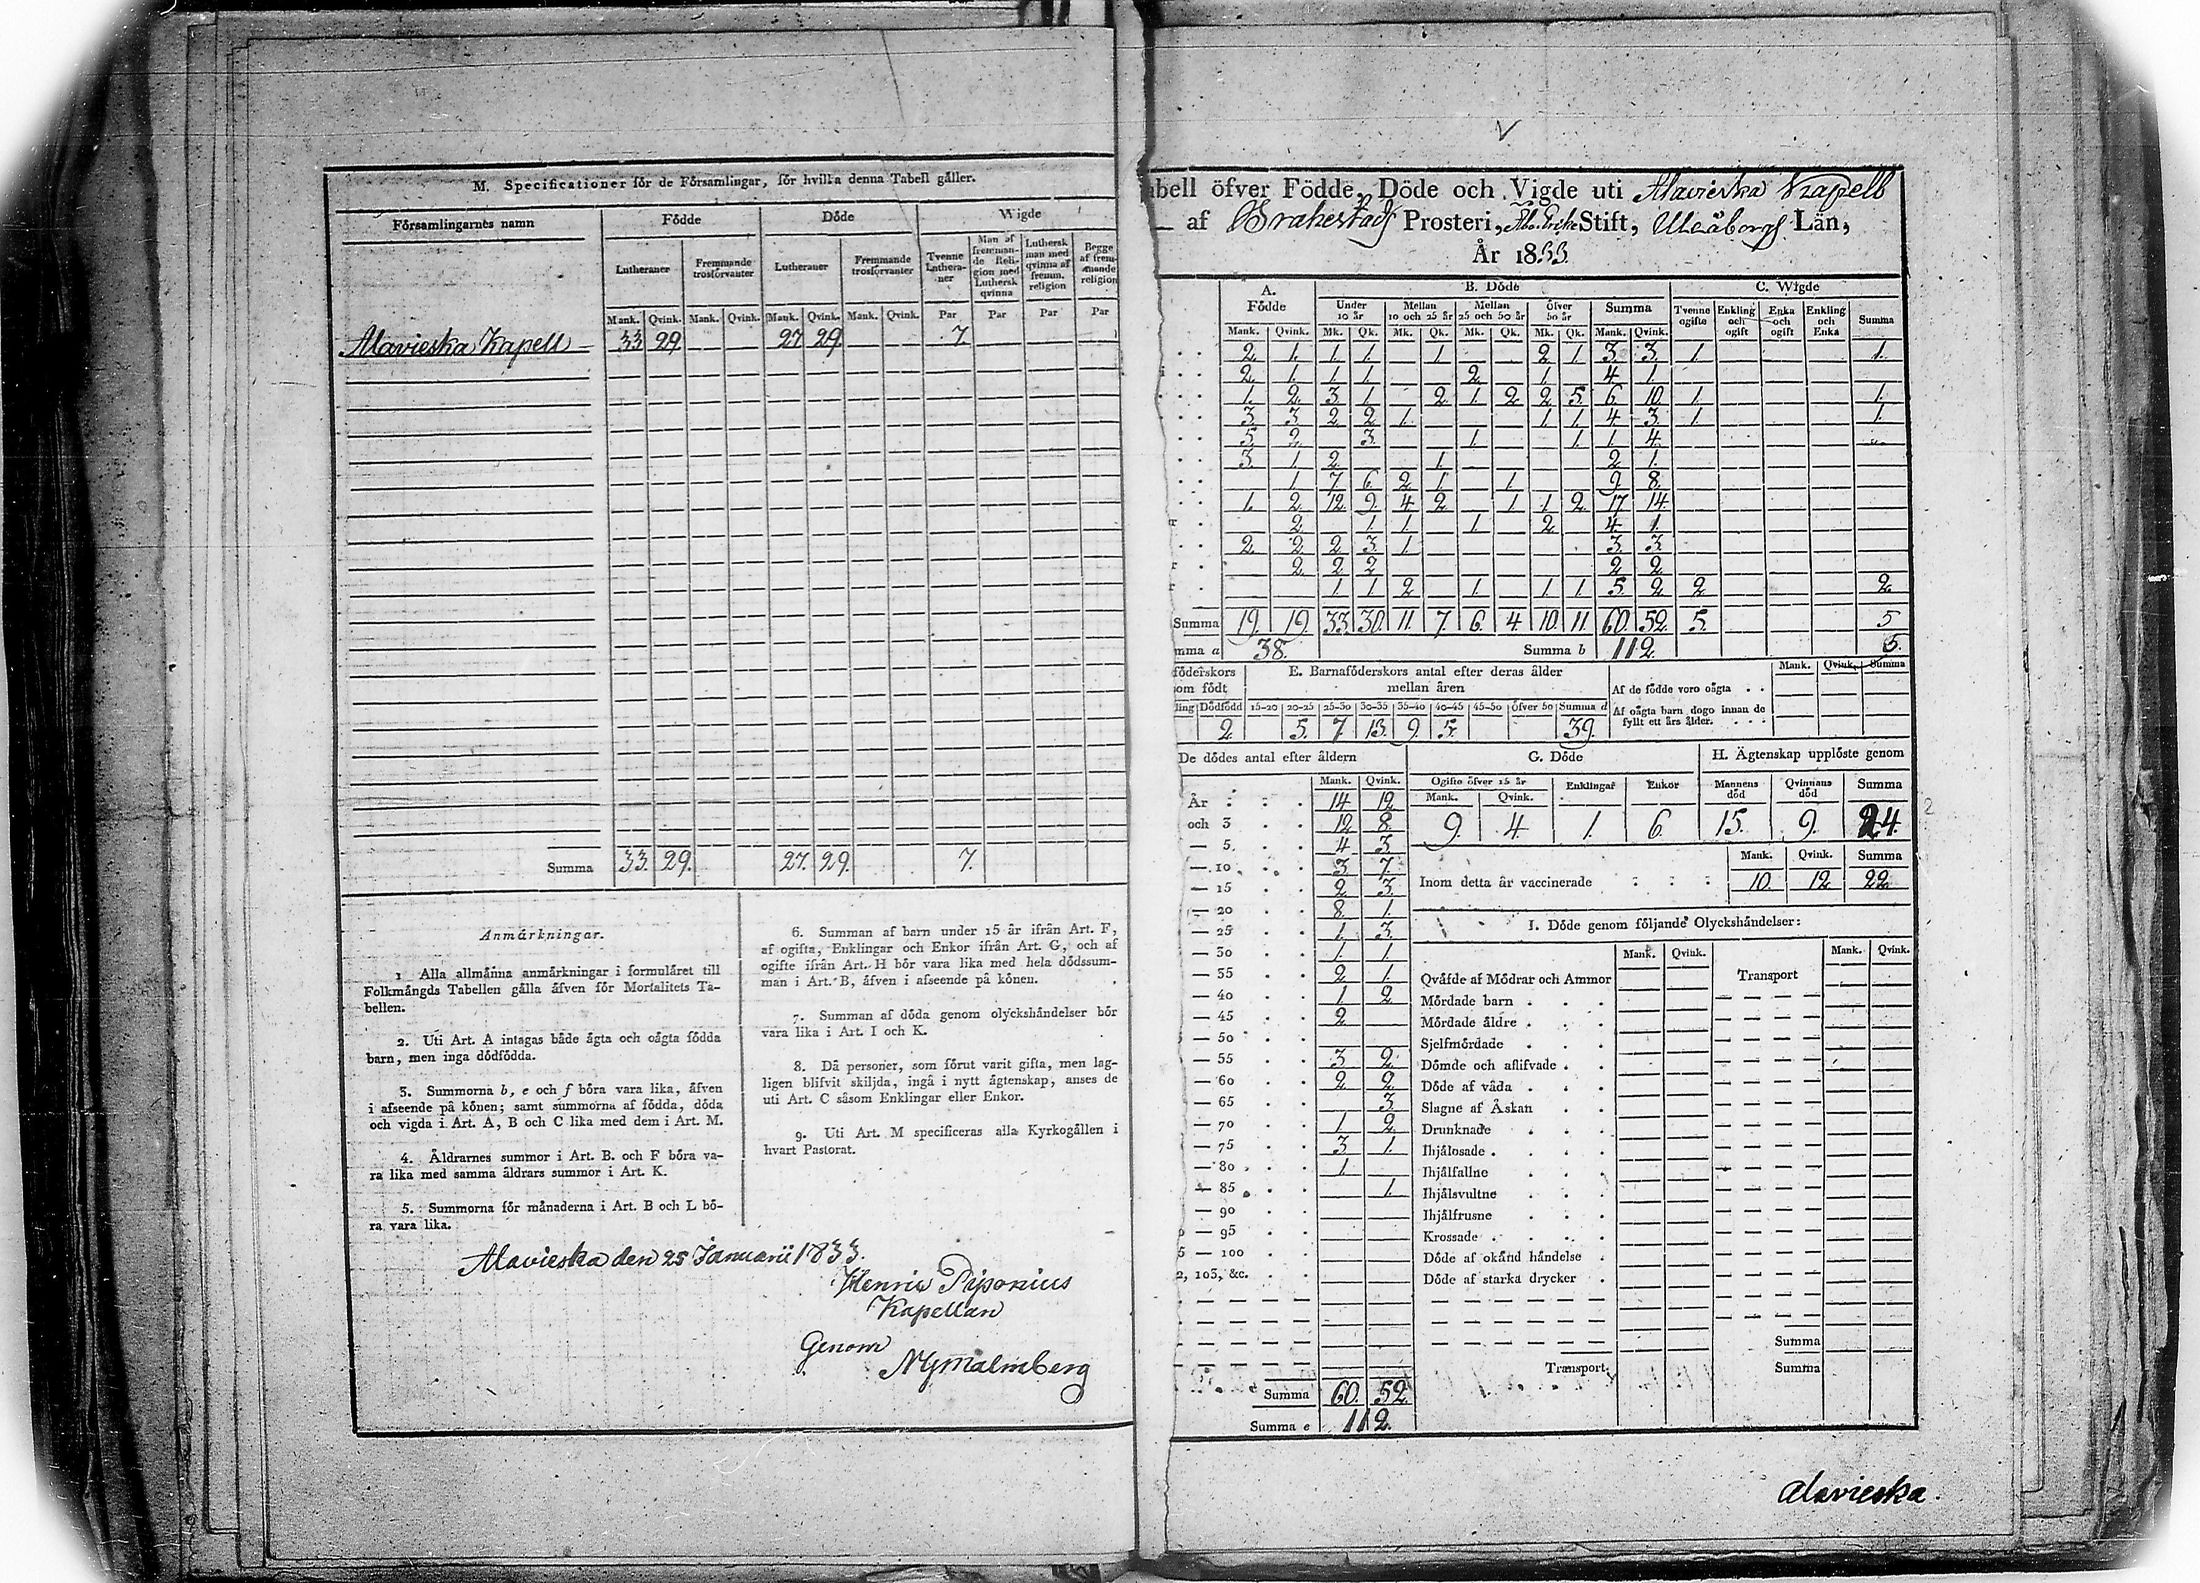 M. Specificationer för de Församlingar, för hvilka denna Tabell gäller.
Församlingarnes namn | Födde | Döde | Wigde
Lutheraner | Fremmande trosförvanter | Lutheraner | Fremmande trosförvanter | Tvenne Lutheraner | Man af fremmande Religion med Luthersk qvinna | Luthersk man med qvinna af fremm. religion | Begge af fremmande religion
Mank. Qvink. Mank. Qvink. Mank. Qvink. Mank. Qvink. Par Par Par Par
Alavieska Kapell 33 29 27 29. 7
Summa 33. 29. 27. 29. 7.
Anmärkningar.
1 Alla allmänna anmärkningar i formuläret till
Folkmängds Tabellen gälla äfven för Mortalitets Ta-
bellen.
2. Uti Art. A intagas både ägta och oägta födda
barn, men inga dödfödda.
3. Summorna b, e och f böra vara lika, äfven
i afseende på könen; samt summorna af födda, döda
och vigda i Art. A, B och C lika med dem i Art. M.
4. Åldrarnes summor i Art. B. och F böra va-
ra lika med samma åldrars summor i Art. K.
5. Summorna för månaderna i Art. B och L bö-
ra vara lika.
6. Summan af barn under 15 år ifrån Art. F,
af ogifta, Enklingar och Enkor ifrån Art. G, och af
ogifte ifrån Art. H bör vara lika med hela dödssum-
man i Art. B, äfven i afseende på könen.
7. Summan af döda genom olyckshändelser bör
vara lika i Art. I och K.
8. Då personer, som förut varit gifta, men lag-
ligen blifvit skiljda, ingå i nytt ägtenskap, anses de
uti Art. C såsom Enklingar eller Enkor.
9. Uti Art. M specificeras alla Kyrkogällen i
hvart Pastorat.
Alavieska den 25 Januarii 1833.
Henric Piponius
Kapellan
Genom
NGMalmberg
bell öfver Födde, Döde och Vigde uti Alavieska Kapell
af Brahestads Prosteri, Stift, Uleåborgs Län,
År 1833.
A. Födde | B. Döde | C. Wigde
Under 10 år | Mellan 10 och 25 år | Mellan 25 och 50 år | Öfver 50 år | Summa | Tvenne ogifte | Enkling och ogift | Enka och ogift | Enkling och Enka | Summa
Mank. Qvink. Mk. Qk. Mk. Qk. Mk. Qk. Mk. Qk. Mank. Qvink.
2. 1. 1. 1. 1. 2 1 3. 3. 1. 1.
2. 1. 1 1. 2. 1. 4 1
1. 2. 3 1. 2 1. 2 2 5. 6 10. 1. 1.
3. 3 2 2 1. 1 1. 4 3. 1 1.
5. 2. 3. 1. 1 1. 4.
3. 1. 2. 1. 2 1.
1 7 6 2 1. 1. 9. 8.
1. 2. 12. 9. 4 2 1 1 2. 17 14.
2. 1 1. 1. 2 4. 1.
2. 2. 2 3. 1. 3. 3.
2. 2 2 2 2.
1 1 2 1. 1 1. 5. 2 2 2.
Summa 19. 19. 33. 30. 11. 7. 6. 4. 10. 11. 60. 52. 5. 5
mma a 38. Summa b 112. 5.
föderskors
om födt
ling Dödfödd
2.
E. Barnaföderskors antal efter deras ålder
mellan åren
15-20 20-25 25-30 30-35 35-40 40-45 45-50 öfver 50 Summa d
5. 7. 13. 9. 5. 39.
Mank. Qvink. Summa
Af de födde voro oägta . .
Af oägta barn dogo innan de
fyllt ett års ålder.
De dödes antal efter åldern
Mank. Qvink.
År 14 12
och 3 12 8.
— 5. 4 3.
— 10 3 7.
— 15 2 3.
— 20 8. 1.
— 25 1. 3.
— 30 1. 1.
— 35 2 1.
— 40 1 2
— 45 2
— 50
— 55 3 2
— 60 2 2
— 65 3
— 70 1 2
— 75 3 1.
— 80 1
— 85 1.
— 90
— 95
5 — 100
2, 103, &c.
Summa 60. 52.
Summa e 112.
G. Döde
Ogifte öfver 15 år | Enklingar | Enkor
Mank. Qvink.
9. 4 1. 6.
H. Ägtenskap upplöste genom
Mannens död | Qvinnans död | Summa
15. 9. 24.
Mank. Qvink. Summa
Inom detta år vaccinerade 10. 12 22
I. Döde genom följande Olyckshändelser:
Mank. Qvink. Mank. Qvink.
Qväfde af Mödrar och Ammor Transport
Mördade barn
Mördade äldre
Sjelfmördade
Dömde och aflifvade
Döde af våda
Slagne af Åskan
Drunknade
Ihjälosade
Ihjälfallne
Ihjälsvultne
Ihjälfrusne
Krossade
Döde af okänd händelse
Döde af starka drycker
Summa
Transport Summa
Alavieska.